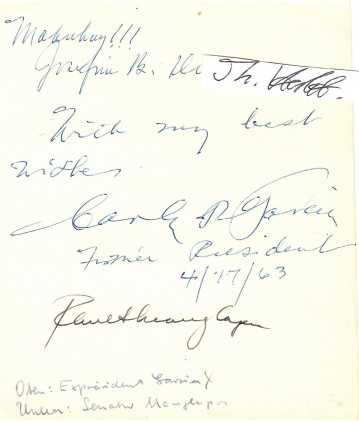 Mabuhay!!!
Josefin B. de
With my best
wishes
Carlos P. Garcia
Former President
4/17/63
Raul Manglapus
Oben: Expräsident Garcia X
Unten: Senator Manglapus